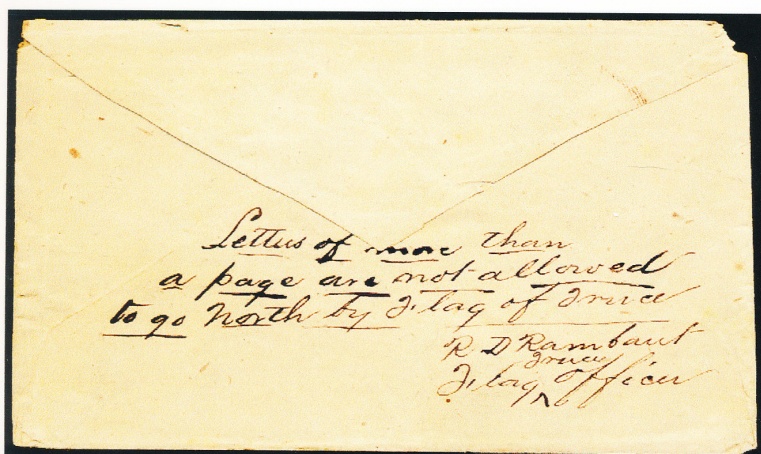 Letters of more than
a page are not allowed
to go North by Flag of Truce
R D Rambaut
Flag truce Officer